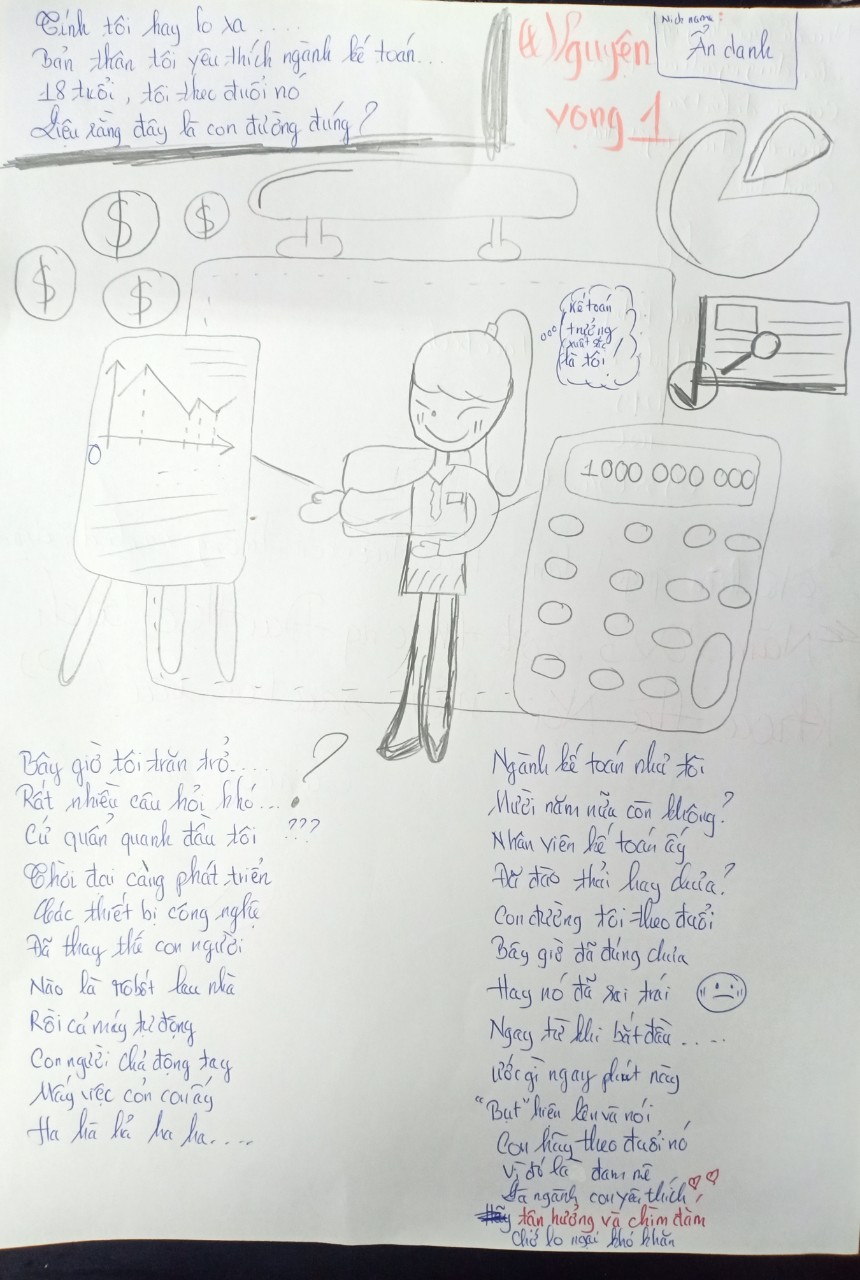 Tính tôi hay lo xa ....
Bản thân tôi yêu thích ngành kế toán...
18 tuổi, tôi theo đuổi nó
Liệu rằng đây là con đường đúng?
Nguyện
vọng 1
Nick name:
Ẩn danh
$
$
$
$
kế toán
trưởng
xuất sắc
là tôi
0
1000 000 000
Bây giờ tôi trăn trở....
Rất nhiều câu hỏi khó...
?
Cứ quẩn quanh đầu tôi
???
Thời đại càng phát triển
Các thiết bị công nghệ
Đã thay thế con người
Nào là robốt lau nhà
Rồi cả máy tự động
Con người chả động tay
Mấy việc cỏn con ấy
Ha hà hả ha ha....
Ngành kế toán như tôi
Mười năm nữa còn không?
Nhân viên kế toán ấy
Đã đào thải hay chưa?
Con đường tôi theo đuổi
Bây giờ đã đúng chưa
Hay nó đã sai trái
Ngay từ khi bắt đầu ....
Ước gì ngay phút này
"Bụt" hiện lên và nói
Con hãy theo đuổi nó
Vì đó là đam mê
Là ngành con yêu thích!
Hãy tận hưởng và chìm đắm
Chớ lo ngại khó khăn